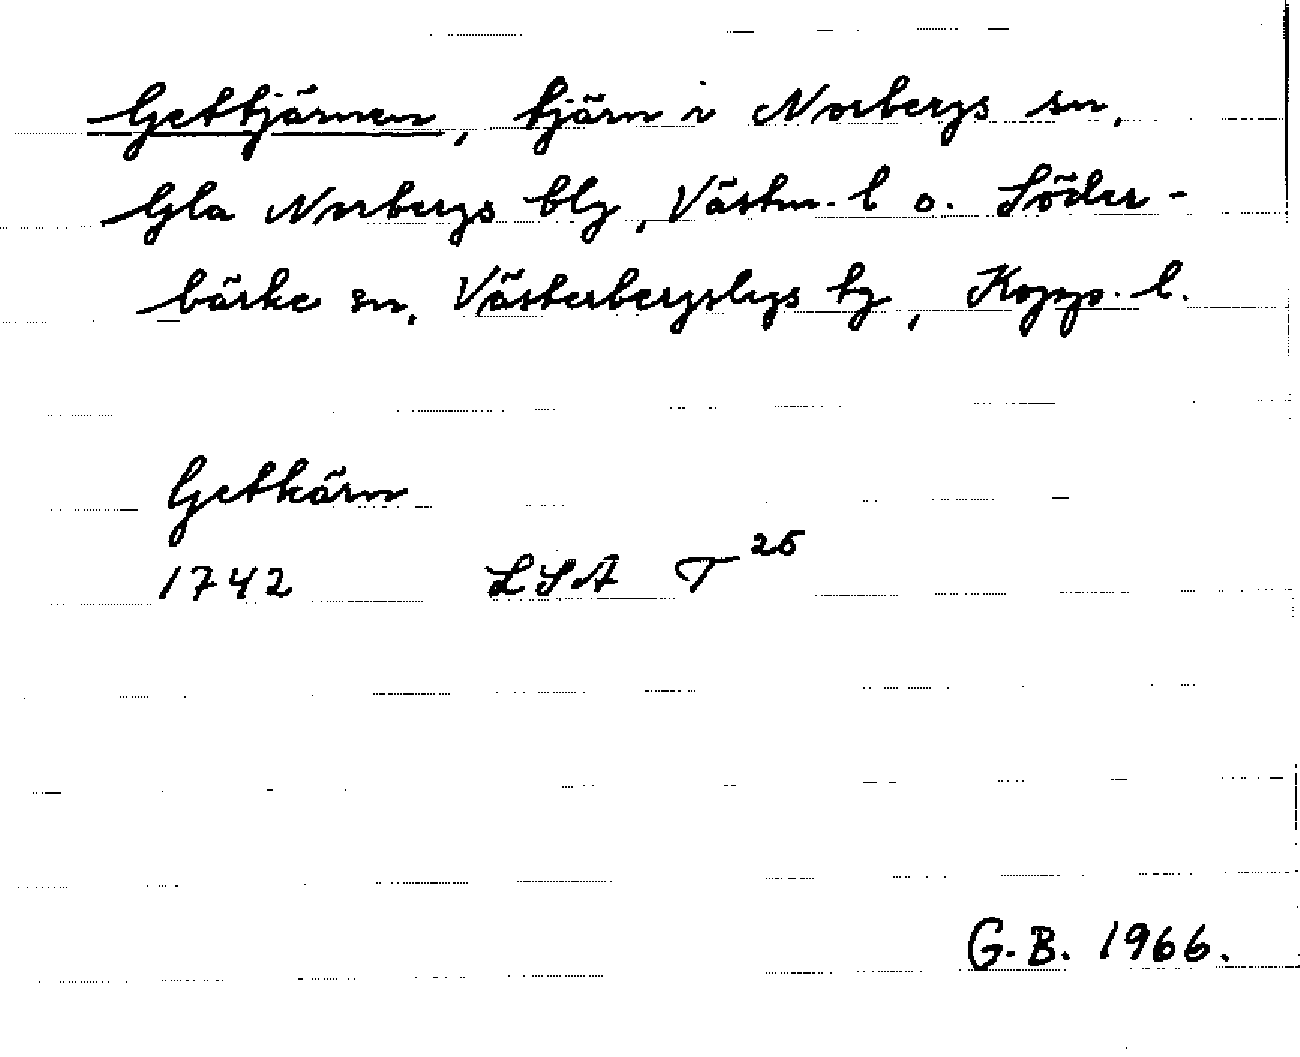 Gettjärnen, tjärn i Norbergs sn,
Gla Norbergs blg, Västm. l o. Söder-
bärke sn, Västerbergslags tg, Kopp. l.
Getkärn
1742 LSA T 25
G.B. 1966.